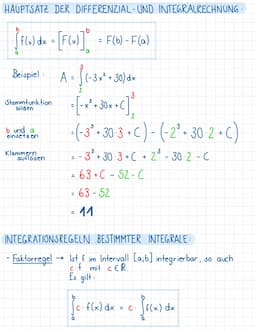 HAUPTSATZ DER DIFFERENZIAL- UND INTEGRALRECHNUNG:
∫ₐᵇ f(x) dx = [F(x)]ₐᵇ = F(b) - F(a)
Beispiel: A = ∫₂³ (-3x² + 30) dx
Stammfunktion bilden = [-x³ + 30x + C]₂³
b und a einsetzen = (-3³ + 30·3 + C) - (-2³ + 30·2 + C)
Klammern auflösen = -3³ + 30·3 + C + 2³ - 30·2 - C
= 63 + C - 52 - C
= 63 - 52
= 11
INTEGRATIONSREGELN BESTIMMTER INTEGRALE:
• Faktorregel → Ist f im Intervall [a,b] integrierbar, so auch
c·f mit c∈ℝ.
Es gilt:
∫ₐᵇ c·f(x) dx = c· ∫ₐᵇ f(x) dx